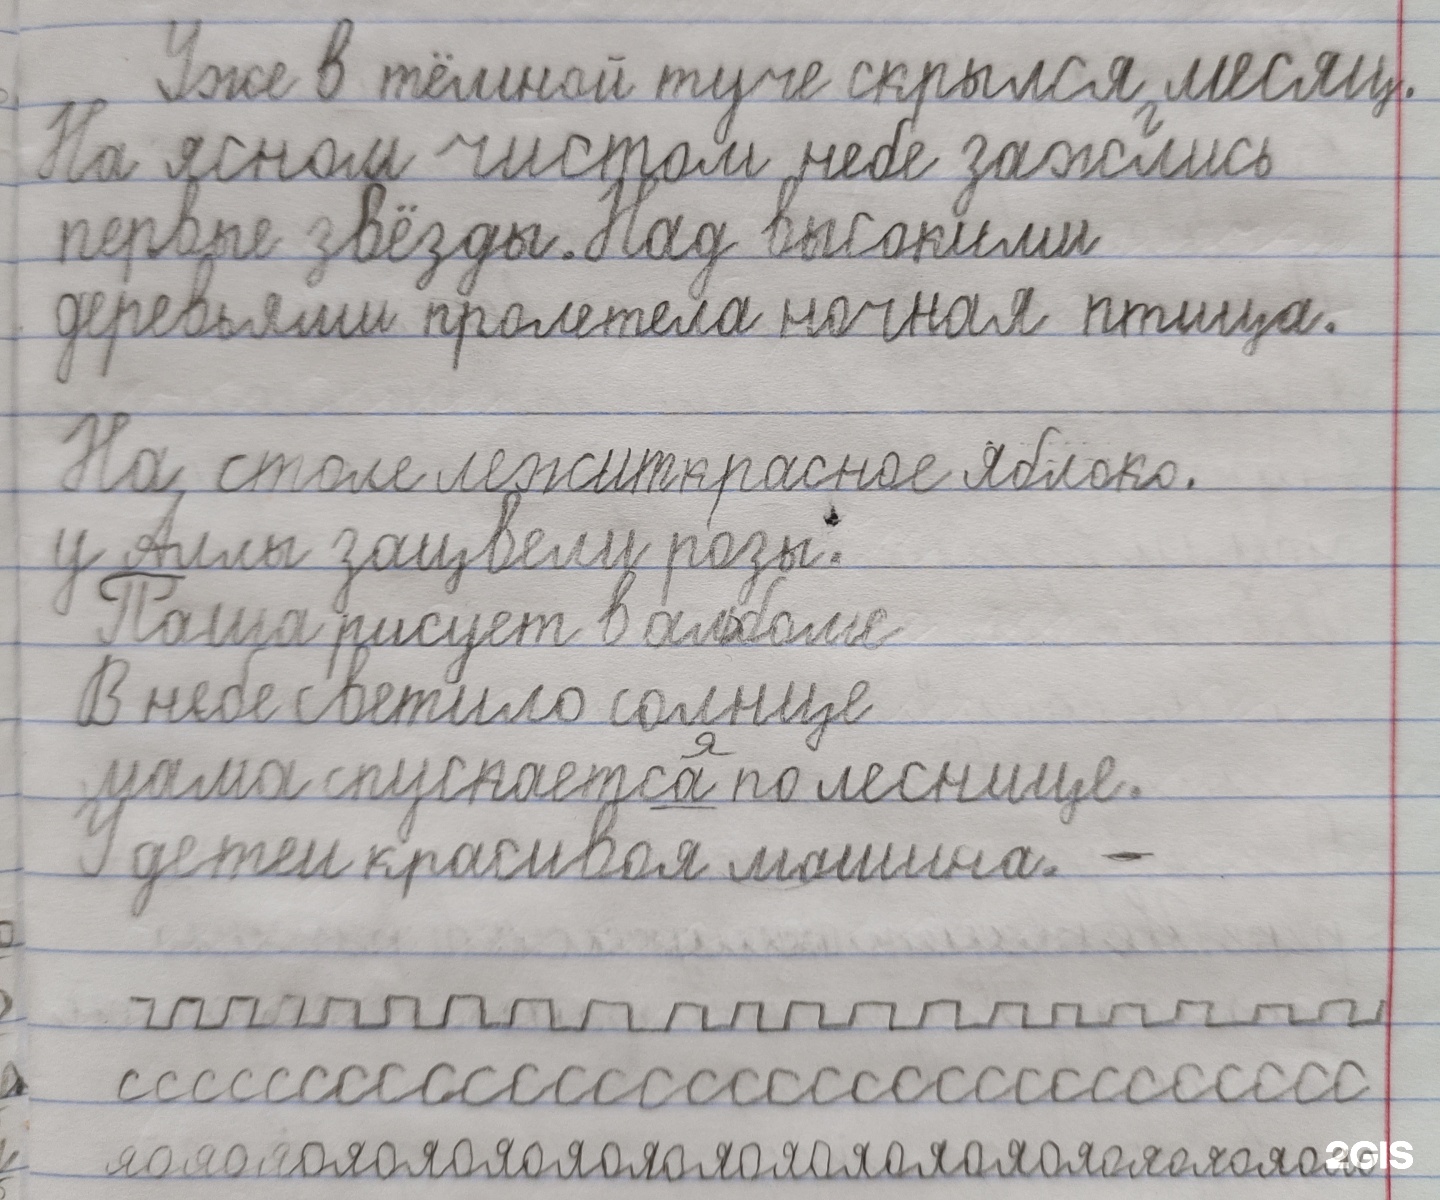 Уже в тёмной туче скрылся месяц.
На ясном чистом небе зажглись
первые звёзды. Над высокими
деревьями пролетела ночная птица.
На столе лежит красное яблоко.
у Аллы зацвели розы.
Паша рисует в альбоме
В небе светило солнце
мама спускаетса я по леснице.
У детеи красивоя машина. -
ссссссссссссссссссссссссссссссс
яояояояояояояояояояояояояояояояояояо
2GIS